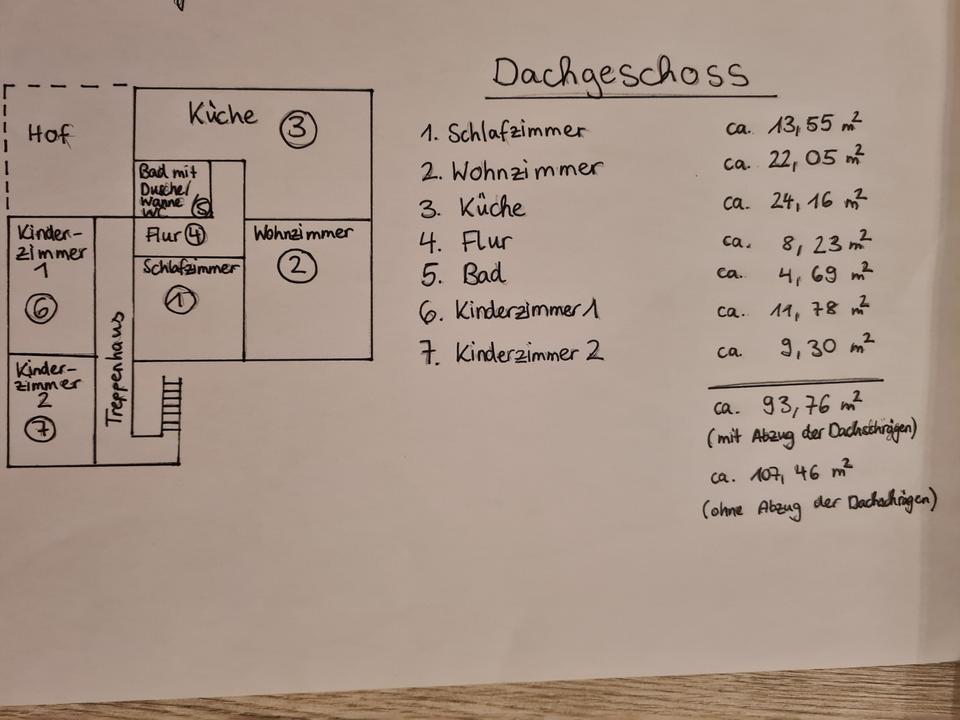 Dachgeschoss
Hof
Küche 3
Bad mit
Dusche/
Wanne
WC 5
Flur 4
Wohnzimmer
2
Schlafzimmer
1
Kinder-
zimmer
1
6
Kinder-
zimmer
2
7
Treppenhaus
1. Schlafzimmer ca. 13,55 m²
2. Wohnzimmer ca. 22,05 m²
3. Küche ca. 24,16 m²
4. Flur ca. 8,23 m²
5. Bad ca. 4,69 m²
6. Kinderzimmer 1 ca. 11,78 m²
7. Kinderzimmer 2 ca. 9,30 m²
ca. 93,76 m²
(mit Abzug der Dachschrägen)
ca. 107,46 m²
(ohne Abzug der Dachschrägen)